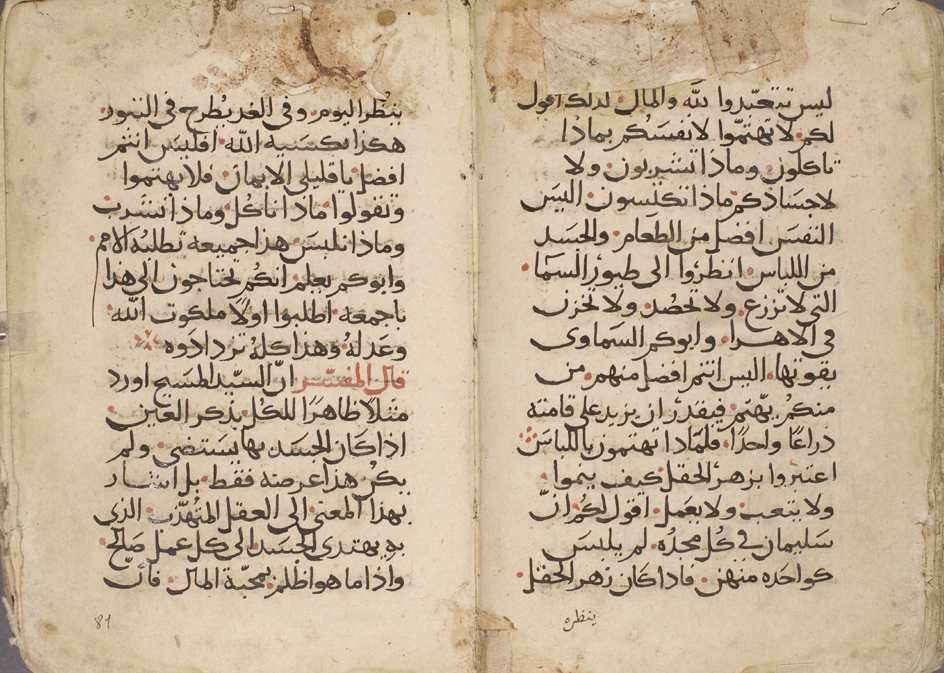 ليس تتعبدوا لله والمال لذلك اقول
لكم لا تهتموا لانفسكم بماذا
تاكلون وماذا تشربون ولا
لاجسادكم ماذا تكتسون اليس
النفس افضل من الطعام والجسد
من اللباس انظروا الى طيور السما
التي لا تزرع ولا تحصد ولا تخزن
في الاهراء وابوكم السماوي
يقوتها اليس انتم افضل منهم من
منكم يهتم فيقدر ان يزيد على قامته
دراعًا واحدًا فلماذا تهتمون باللباس
اعتبروا بزهر الحقل كيف ينموا
ولا يتعب ولا يعمل اقول لكم انّ
سليمان في كُل مجدُه لم يلبس
كواحده منهن فاذا كان زهر الحقل
ينظره
ينظر اليوم وفي الغد يطرح في التنور
هكذا يكسيه الله افليس انتم
افضل يا قليلي الايمان فلا تهتموا
وتقولوا ماذا ناكل وماذا نشرب
وماذا نلبس هذا جميعه تطلبه الامم
وابوكم يعلم انكم تحتاجون الى هذا
باجمعه اطلبوا اولًا ملكوت الله
وعدله وهذا كله تزدادوه
قال المفسّر انّ السيّد المسيح اورد
مثلًا ظاهرًا للكل بذكر العين
اذا كان الجسد بها يستضي ولم
يكن هذا غرضه فقط بل اشار
بهذا المعنى الى العقل المتهدّب الذي
به يهتدي الجسد الى كل عمل صالح
واذا ما هو اظلم بمحبّة المال فانّ
81